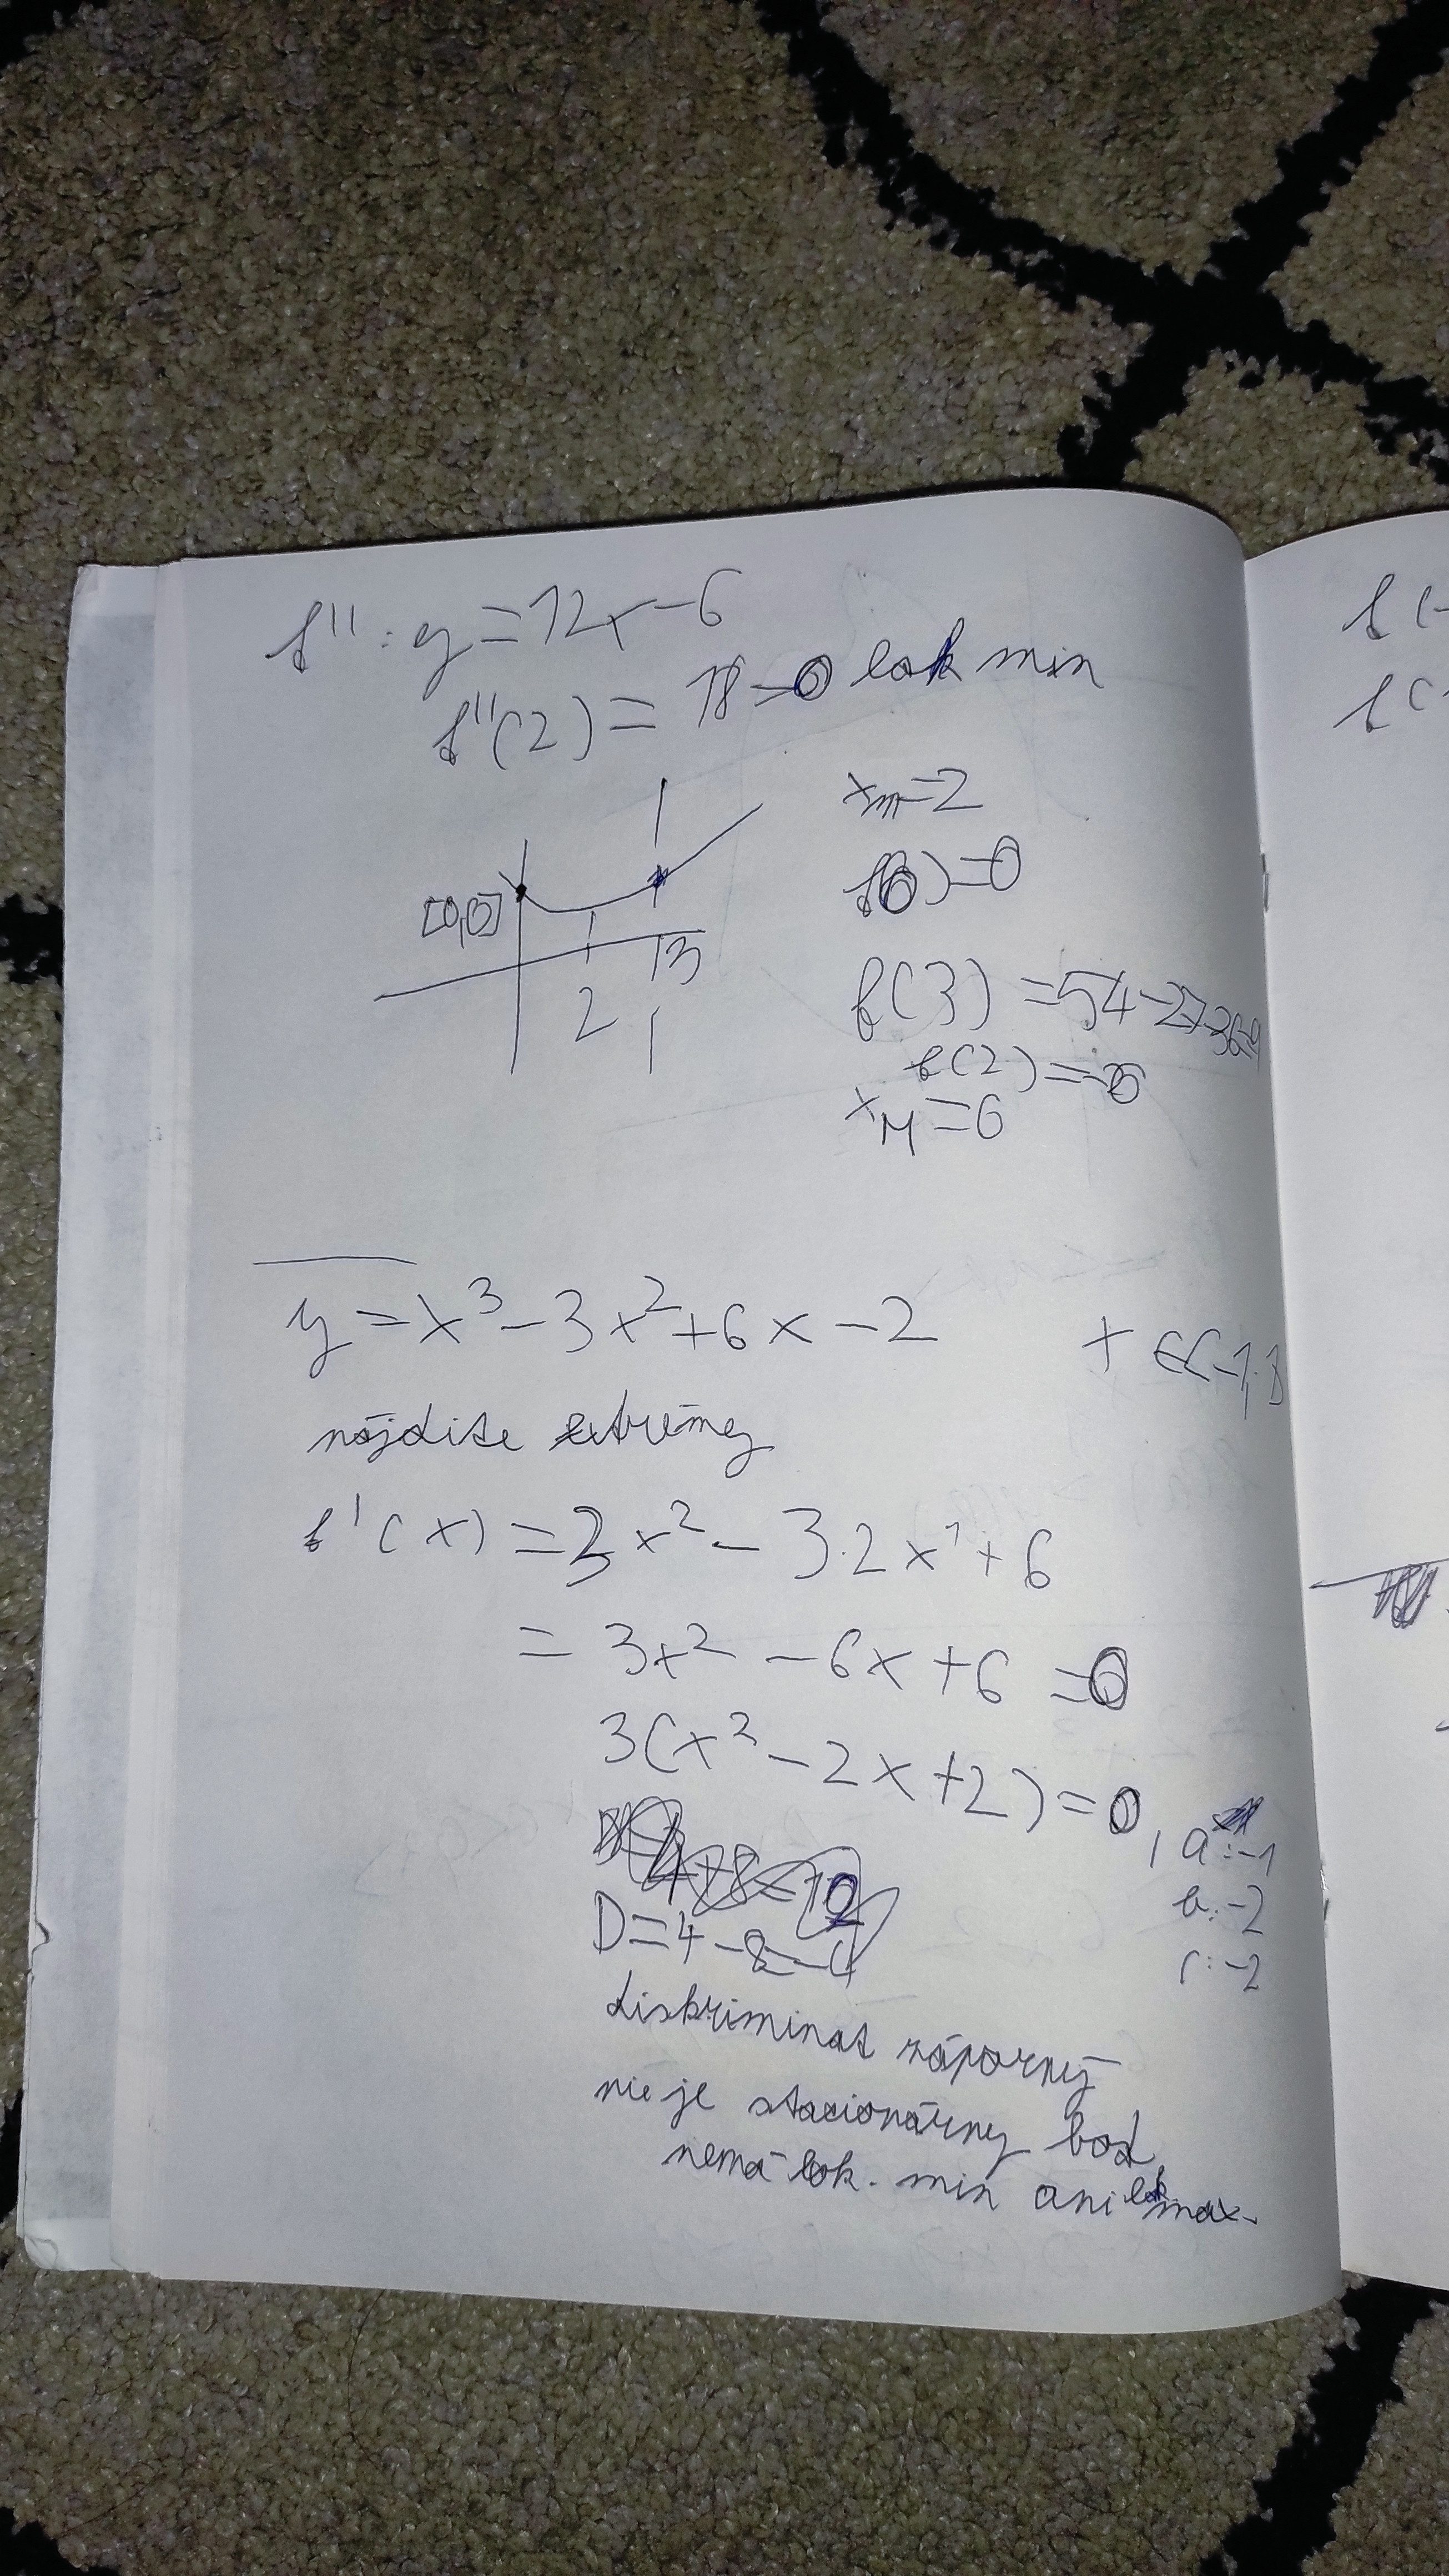 f'' : y = 12x - 6
f''(2) = 18 > 0 lok min
x_m = 2
[0,0]
f(0) = 0
3
2
f(3) = 54 - 27 - 36 = -9
f(2) =
x_M = 0
y = x³ - 3x² + 6x - 2 x ∈ <-1,1
nájdite extrémy
f'(x) = 3x² - 3.2x¹ + 6
= 3x² - 6x + 6 = 0
3(x² - 2x + 2) = 0, a: -1
b: -2
D = 4 - 8 = -4 c: -2
diskriminat záporný
nie je stacionárny bod
nemá lok. min ani lok max.
f(-
f(